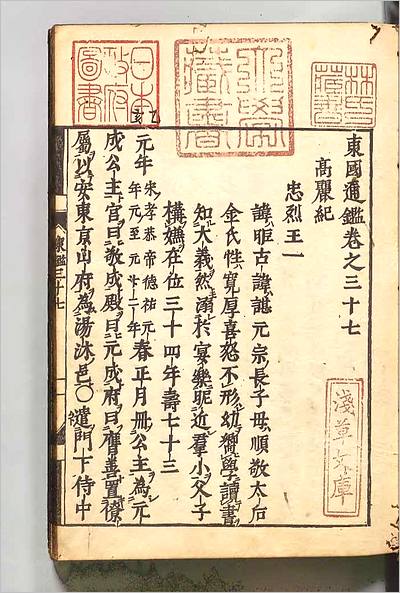 林氏藏書
大學藏書
日本政府圖書
東國通鑑卷之三十七
高麗紀
忠烈王一
諱昛古諱諶元宗長子母順敬太后
金氏性寬厚喜怒不形幼嚮學讀書
知大義然溺於宴樂昵近羣小父子
構嫌在位三十四年壽七十三
乙亥
元年宋孝恭帝德祐元年元至元十二年春正月冊公主為元
成公主宮曰敬成殿曰元成府曰膺善置僚
屬以安東京山府為湯沐邑○遣門下侍中
東鑑三十七
淺草文庫